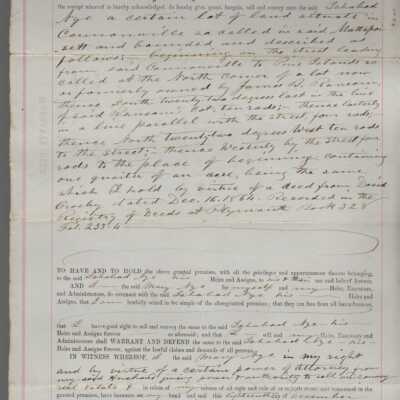 the receipt whereof is hereby acknowledged, do hereby give, grant, bargain, sell and convey unto the said Sahabad
Nye a certain lot of land situate in
Cannonville so called in said Mattapoi-
sett and bounded and described as
follows: beginning on the street leading
from said Cannonville to Pine Islands so
called at the North corner of a lot now
or formerly owned by James
thence South twenty two degrees East in the line
of said ten rods; thence Easterly
in a line parallel with the street four rods;
thence North twenty two degrees West ten rods
to the street; thence Westerly by the street four
rods to the place of beginning containing
one quarter of an acre, being the same
which I hold by virtue of a deed from David
Crosby dated Dec. 16. 1864. Recorded in the
Registry of Deeds at Plymouth Book 328
Fol. 233.4
TO HAVE AND TO HOLD the above granted premises, with all the privileges and appurtenances thereto belonging,
to the said Sahabad Nye his Heirs and Assigns, to use and behoof forever.
AND I the said Mary Nye for myself and my Heirs, Executors,
and Administrators, do covenant with the said Sahabad Nye his Heirs and
Assigns, that I am lawfully seized in fee simple of the aforegranted premises; that they are free from all Incumbrances,
that I have good right to sell and convey the same to the said Sahabad Nye his
Heirs and Assigns forever as aforesaid; and that I will and my Heirs, Executors and
Administrators shall WARRANT AND DEFEND the same to the said Sahabad Nye his
Heirs and Assigns forever, against the lawful claims and demands of all persons.
IN WITNESS WHEREOF, I the said Mary Nye in my right
and by virtue of a certain power of Attorney from
my said husband giving power &amp; authority to sell all my
real Estate
granted premises, have hereunto set my hand and seal this eighteenth December